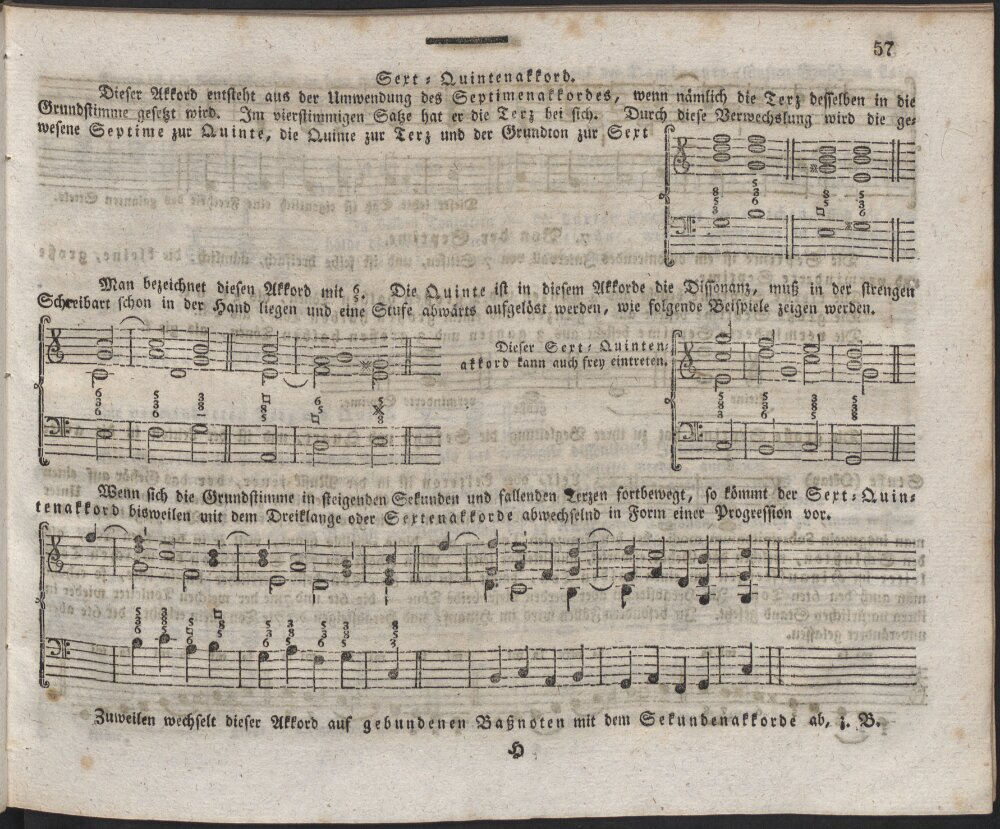 57
Sext-Quintenakkord.
Dieser Akkord entsteht aus der Umwendung des Septimenakkordes, wenn nämlich die Terz desselben in die
Grundstimme gesetzt wird. Im vierstimmigen Satze hat er die Terz bei sich. Durch diese Verwechslung wird die ge-
wesene Septime zur Quinte, die Quinte zur Terz und der Grundton zur Sext
Man bezeichnet diesen Akkord mit 6/5. Die Quinte ist in diesem Akkorde die Dissonanz, muß in der strengen
Schreibart schon in der Hand liegen und eine Stufe abwärts aufgelöst werden, wie folgende Beispiele zeigen werden.
Dieser Sext-Quinten-
akkord kann auch frey eintreten.
Wenn sich die Grundstimme in steigenden Sekunden und fallenden Terzen fortbewegt, so kömmt der Sext-Quin-
tenakkord bisweilen mit dem Dreiklange oder Sextenakkorde abwechselnd in Form einer Progression vor.
Zuweilen wechselt dieser Akkord auf gebundenen Baßnoten mit dem Sekundenakkorde ab, z. B.
H